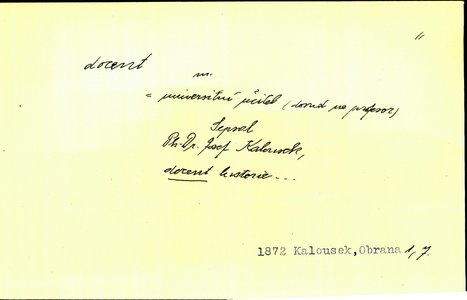 "
docent
m.
= universitní učitel (dosud ne profesor)
Sepsal
Ph. Dr. Josef Kalousek,
docent historie...
1872 Kalousek,Obrana 1, 7.